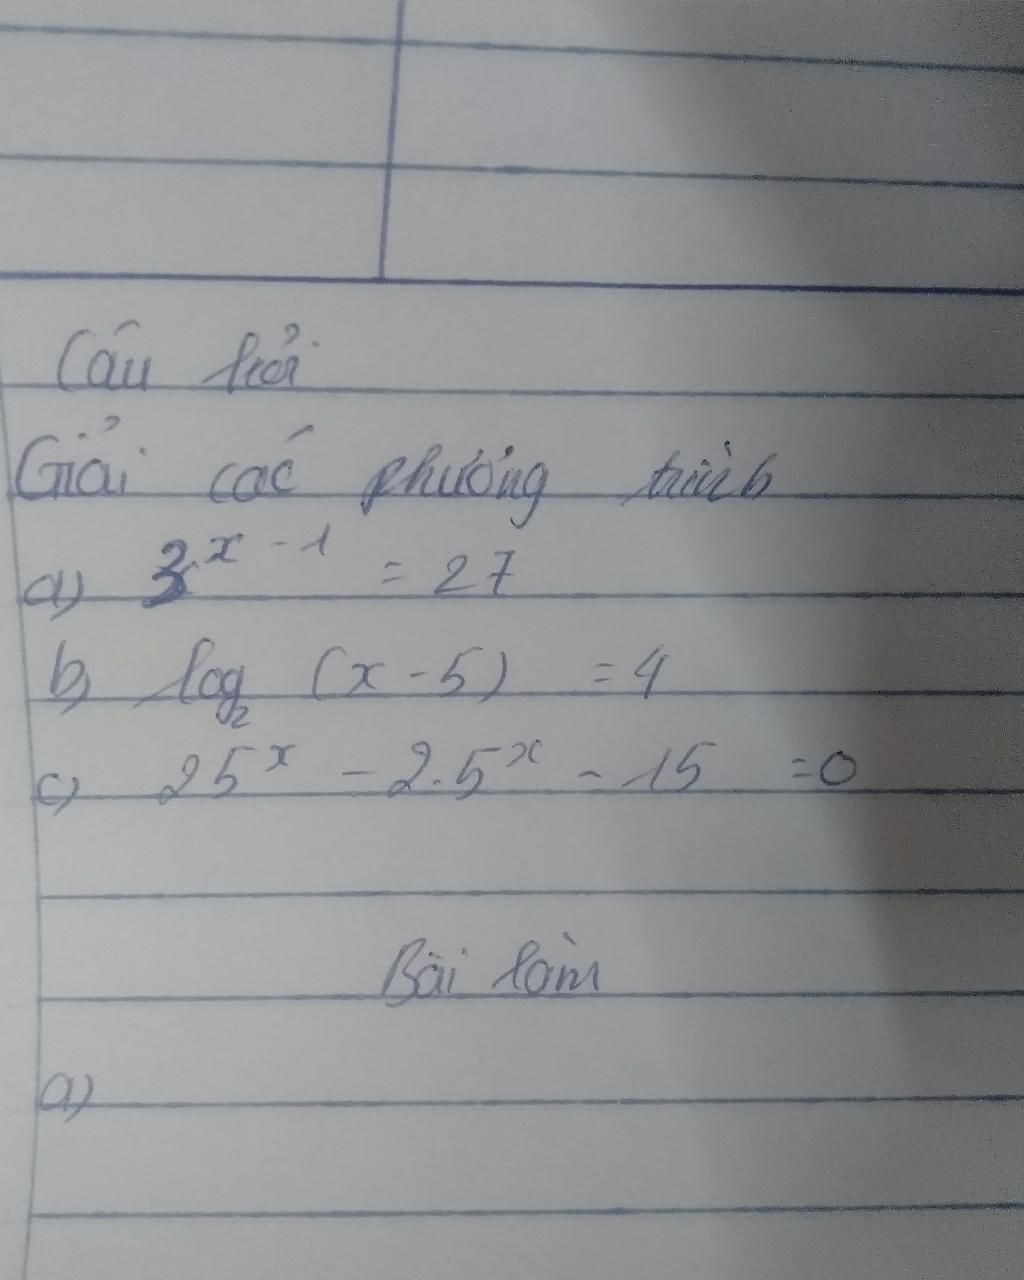 Câu hỏi
Giải các phương trình
a) 3^x-1 = 27
b) log₂ (x - 5) = 4
c) 25^x - 2.5^x - 15 = 0
Bài làm
a)